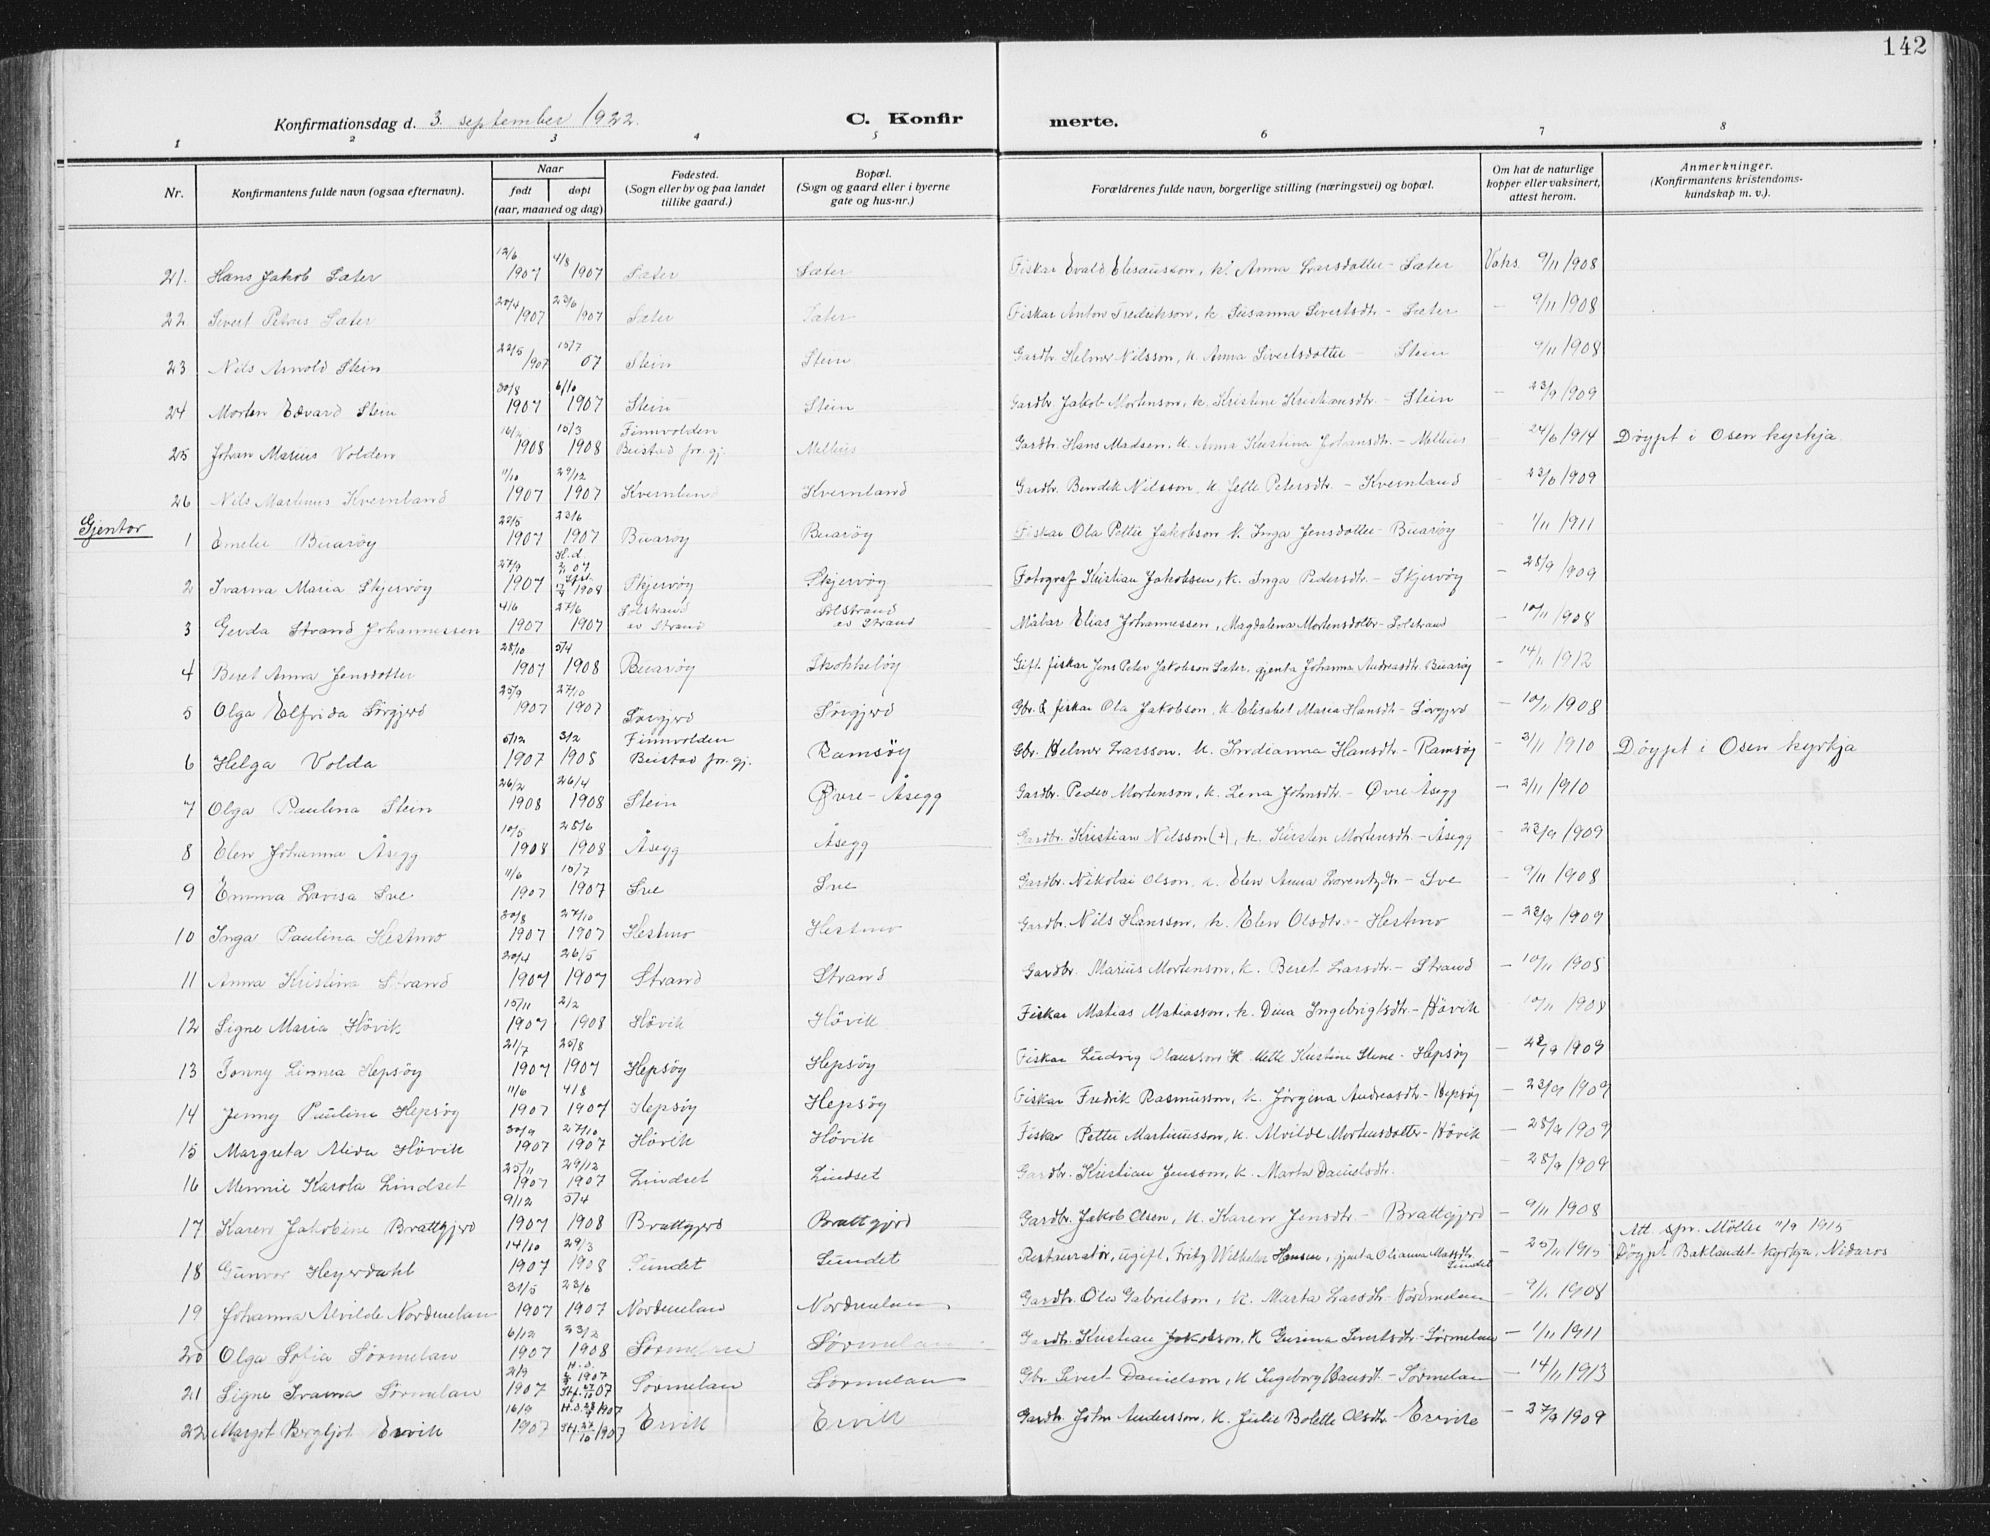 142
Konfirmationsdag d. 3. september 1922.
C. Konfirmerte.
1 2 3 4 5 6 7 8
Nr. Konfirmantens fulde navn (ogsaa efternavn). Naar født døpt (aar, maaned og dag) Fødested. (Sogn eller by og paa landet tillike gaard.) Bopæl. (Sogn og gaard eller i byerne gate og hus-nr.) Forældrenes fulde navn, borgerlige stilling (næringsvei) og bopæl. Om hat de naturlige kopper eller vaksinert, attest herom. Anmerkninger. (Konfirmantens kristendomskundskap m. v.).
21. Hans Jakob Sæter 12/6 1907 4/8 1907 Sæter Sæter Fiskar Evald Elisausson, k. Anna Larsdotter - Sæter Vaks. 9/11 1908
22 Sivert Petrus Sæter 20/4 1907 23/6 1907 Sæter Sæter Fiskar Anton Fredrikson, k. Susanna Sivertsdtr - Sæter - 9/11 1908
23 Nils Arnold Stein 22/5 1907 15/7 07 Stein Stein Gardbr. Helmer Nilsson, k. Anna Sivertsdotter - Stein 9/11 1908
24 Morten Edvard Stein 30/8 1907 6/10 1907 Stein Stein Gardbr. Jakob Mortenson, k. Kristine Kristiansdtr. - Stein - 23/9 1909
25 Johan Marius Volden 16/2 1908 15/3 1908 Finnvolden Beistad pr.gj. Melhus Gardbr. Hans Madsen, k. Anna Kristina Johansdtr. - Melhus - 24/6 1914 Döypt i Osen kyrkja.
26 Nils Martinus Kvernland 11/10 1907 29/12 1907 Kvernland Kvernland Gardbr. Bendik Nilsson, k. Jette Petersdtr. - Kvernland - 23/6 1909
Gjentor
1 Emelie Buarøy 22/5 1907 23/6 1907 Buarøy Buarøy Fiskar Ola Petter Jakobson k. Inga Jensdotter - Buarøy - 1/11 1911
2 Ivarna Maria Skjervøy 27/9 1907 H.d. 07 1908 Skjervøy Skjervøy Fotograf Kristian Jakobsen, k. Inga Pedersdtr. - Skjervøy - 28/9 1909
3 Gerda Strand Johannessen 4/6 1907 27/6 1907 Solstrand av Strand Solstrand av Strand Målar Elias Johannessen, Magdalena Mortensdotter - Solstrand - 10/11 1908
4 Beret Anna Jensdotter 28/10 1907 5/4 1908 Buarøy Skokkeløy Gift fiskar Jens Peter Jakobson Sæter, gjenta Johanna Andreasdtr. Buarøy - 14/11 1912
5 Olga Elfrida Sörgjerd 25/9 1907 27/10 1907 Sörgjerd Sörgjerd Gbr. & fiskar Ola Jakobson, k. Elisabet Maria Hansdtr - Sörgjerd - 10/11 1908
6 Helga Volda 5/12 1907 3/2 1908 Finnvolden Beistad pr.gj. Ramsøy Gbr. Helmer Larsson, k. Indianna Hansdtr - Ramsøy - 3/11 1910 Döypt i Osen kyrkja
7 Olga Paulina Stein 26/2 1908 26/4 1908 Stein Øvre-Åsegg Gardbr. Peder Mortenson, k. Lena Johnsdtr. - Øvre Åsegg - 2/11 1910
8 Elen Johanna Åsegg 10/5 1908 28/6 1908 Åsegg Åsegg Gardbr. Kristian Nilsson (+), k. Kirsten Mortensdtr. - Åsegg - 23/9 1909
9 Emma Lovisa Sve 11/6 1907 15/7 1907 Sve Sve Gardbr. Nikolai Olson, k. Elen Anna Lorentzdtr - Sve - 9/11 1908
10 Inga Paulina Hestmo 30/8 1907 27/10 1907 Hestmo Hestmo Gardbr. Nils Hansson, k. Elen Olsdtr - Hestmo - 23/9 1909
11 Anna Kristina Strand 20/4 1907 26/5 1907 Strand Strand Gardbr. Marius Mortenson, k. Beret Larsdtr. - Strand - 10/11 1908
12 Signe Maria Hövik 15/11 1907 2/2 1908 Hövik Hövik Fiskar Matias Matiasson, k. Dina Ingebrigtsdtr. - Hövik 10/11 1908
13 Jonny Linnea Hepsöy 21/7 1907 25/8 1907 Hepsöy Hepsöy Fiskar Ludvig Olausson k. Mette Kristine Stene - Hepsöy - 28/9 1909
14 Jenny Pauline Hepsöy 11/6 1907 4/8 1907 Hepsöy Hepsöy Fiskar Fredrik Rasmusson, k. Jørgina Andreasdtr. - Hepsöy - 23/9 1909
15 Margreta Alida Hövik 30/9 1907 27/10 1907 Hövik Hövik Fiskar Petter Martinusson, k. Alvilde Mortensdotter - Hövik - 28/9 1909
16 Mennie Karola Lindset 25/11 1907 29/12 1907 Lindset Lindset Gardbr. Kristian Jensson, k. Marta Danielsdtr. - 28/9 1909
17 Karen Jakobine Brattgjerd 9/12 1907 5/4 1908 Brattgjerd Brattgjerd Gardbr. Jakob Olsen, k. Karen Jensdtr - Brattgjerd - 9/11 1908
18 Gunvor Heyerdahl 14/10 1907 29/3 1908 Sundet Sundet Restauratör, ugift, Fritz Wilhelm Hansen, gjenta Olianna Matsdtr. Sundet - 25/11 1915 Att. spr. Möller 11/9 1915 Döypt Baklandet kyrkja, Nidaros
19 Johanna Alvilde Nordmelan 31/5 1907 23/6 1907 Nordmelan Nordmelan Gardbr. Ola Gabrielson, k. Marta Larsdtr - Nordmelan - 9/11 1908
20 Olga Sofia Sörmelan 6/12 1907 23/2 1908 Sörmelan Sörmelan Gardbr. Kristian Jakobson, k. Gurina Sivertsdtr. - Sörmelan - 1/11 1911
21 Signe Ivarna Sörmelan 2/9 1907 H.d. 1907 Stf. 27/10 07 Sörmelan Sörmelan Gbr. Sivert Danielson, k. Ingeborg Hansdtr. - Sörmelan - 14/11 1913
22 Margot Bergljot Ervik 16/9 1907 H.d. 1907 Stf. 27/10 1907 Ervik Ervik Gardbr. John Andersson, k. Julie Bolette Olsdtr - Ervik - 27/9 1909